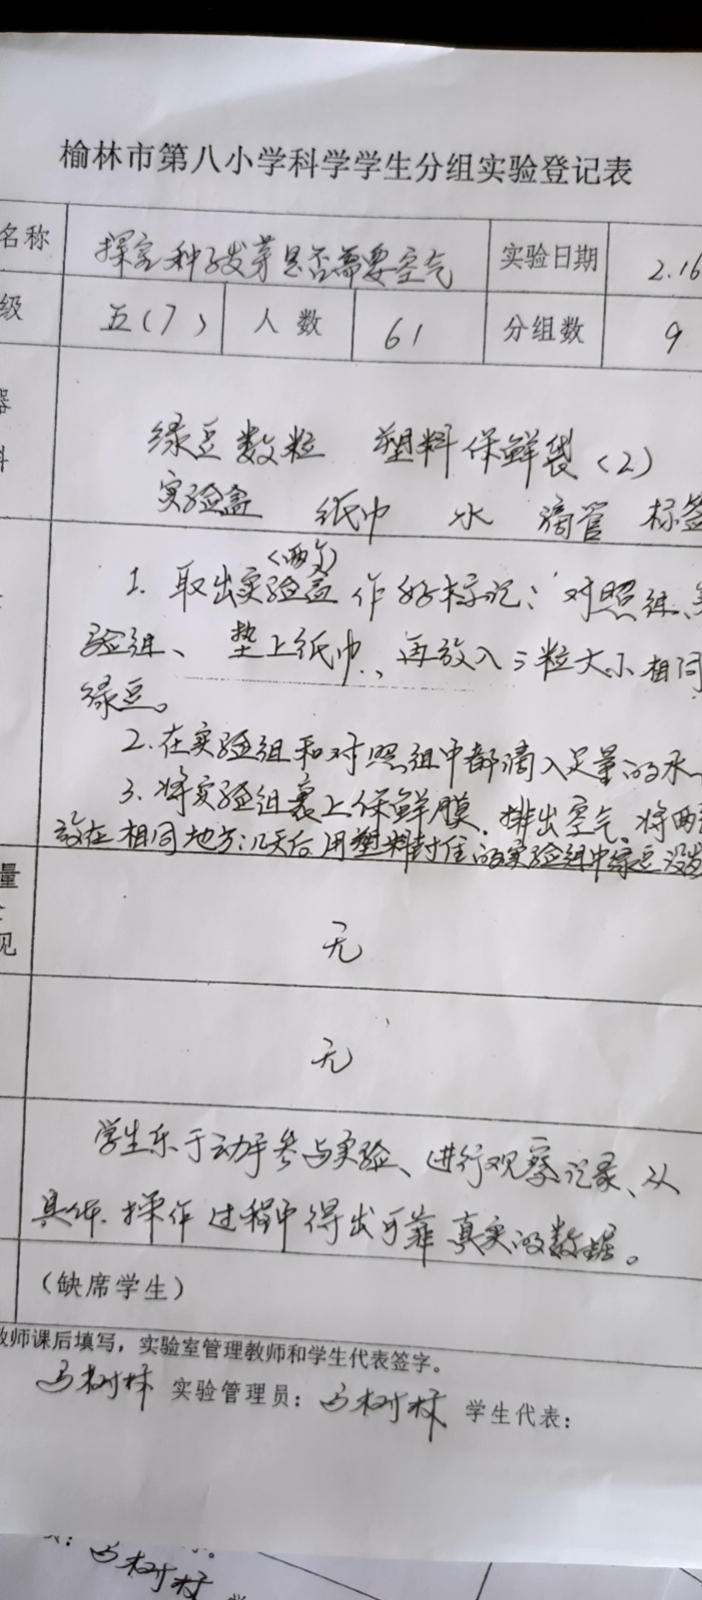 榆林市第八小学科学学生分组实验登记表
名称 探究种子发芽是否需要空气 实验日期 2.16
级 五(7) 人数 61 分组数 9
器
料
绿豆数粒 塑料保鲜袋(2)
实验盒 纸巾 水 滴管 标签
(两个)
1. 取出实验盒作好标记:对照组、实
验组、垫上纸巾、再放入3粒大小相同
绿豆。
2.在实验组和对照组中都滴入足量的水、
3.将实验组裹上保鲜膜.排出空气.将两
放在相同地方:几天后用塑料封住的实验组中绿豆没发
量
见
无
无
学生乐于动手参与实验、进行观察记录、从
具体操作过程中得出可靠真实的数据。
(缺席学生)
教师课后填写,实验室管理教师和学生代表签字。
马树林 实验管理员:马树林 学生代表:
马树林